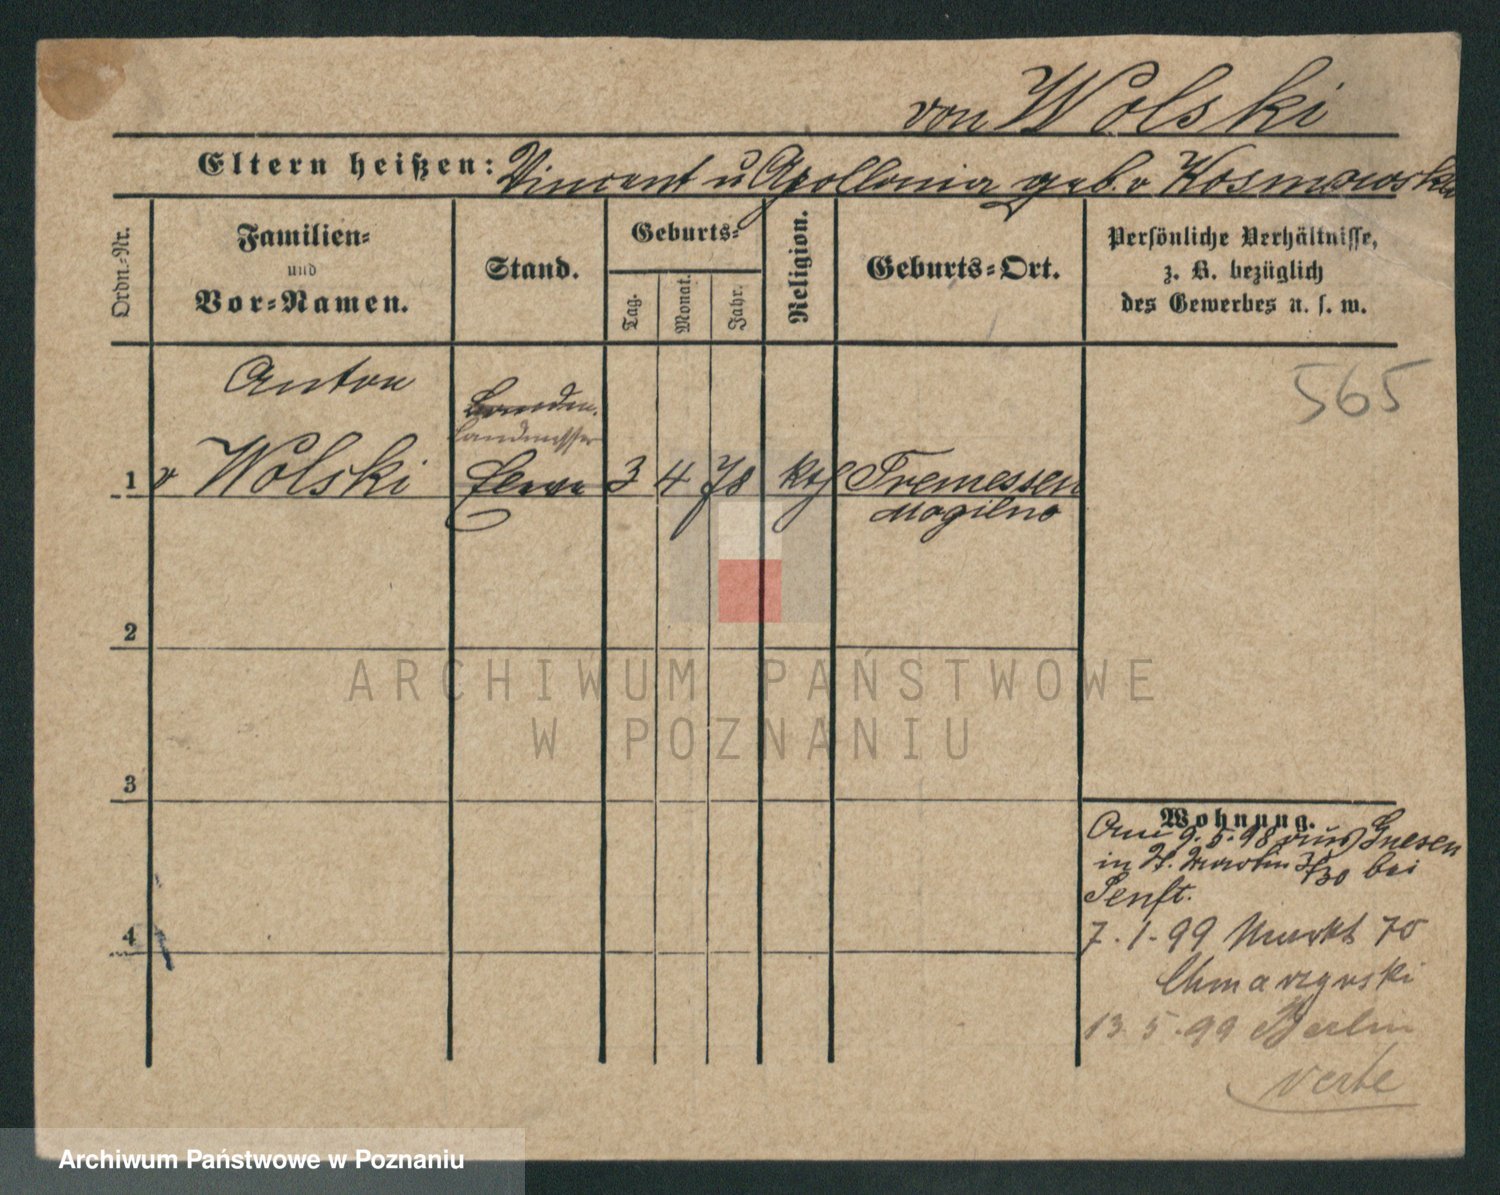 von Wolski
Eltern heißen: Vincent u Apollonia geb. v Kosmowska
Ordn.-Nr.
Familien-
und
Vor-Namen.
Stand.
Geburts-
Tag.
Monat.
Jahr.
Religion.
Geburts-Ort.
Persönliche Verhältnisse,
z. B. bezüglich
des Gewerbes u. s. w.
565
Anton
Landmesser
1 v Wolski 3 4 78 kth Tremessen
Mogilno
2
3
4
Wohnung.
Am 9.5.98 aus Gnesen
in St. Martin bei
Senft.
7.1.99 Markt 70
13.5.99 Berlin
verte
ARCHIWUM PAŃSTWOWE
W POZNANIU
Archiwum Państwowe w Poznaniu